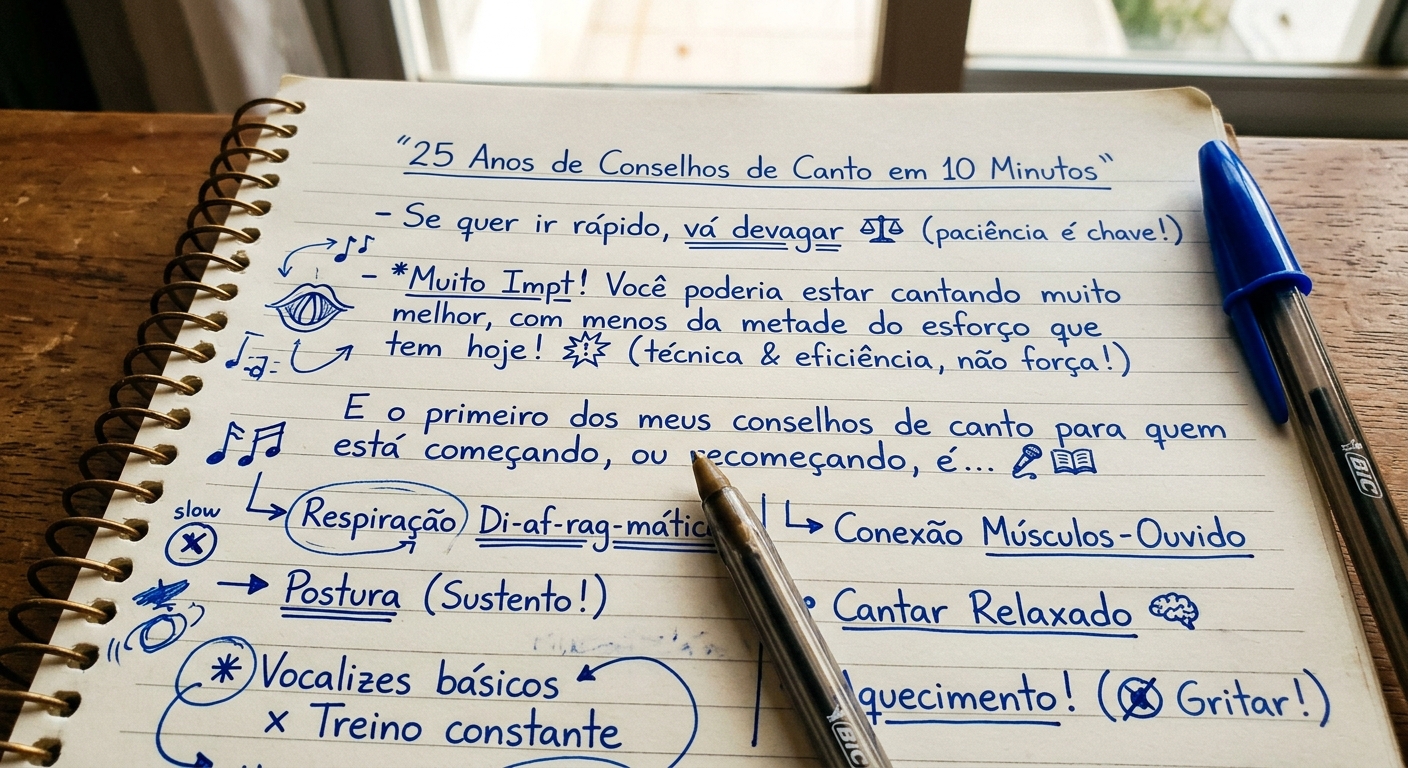 "25 Anos de Conselhos de Canto em 10 Minutos"
- Se quer ir rápido, vá devagar (paciência é chave!)
- *Muito Impt! Você poderia estar cantando muito
melhor, com menos da metade do esforço que
tem hoje! (técnica & eficiência, não força!)
E o primeiro dos meus conselhos de canto para quem
está começando, ou recomeçando, é...
slow
Respiração Di-af-rag-mátic
→ Postura (Sustento!)
* Vocalizes básicos
x Treino constante
Conexão Músculos-Ouvido
• Cantar Relaxado
quecimento! (Gritar!)
BIC
BIC